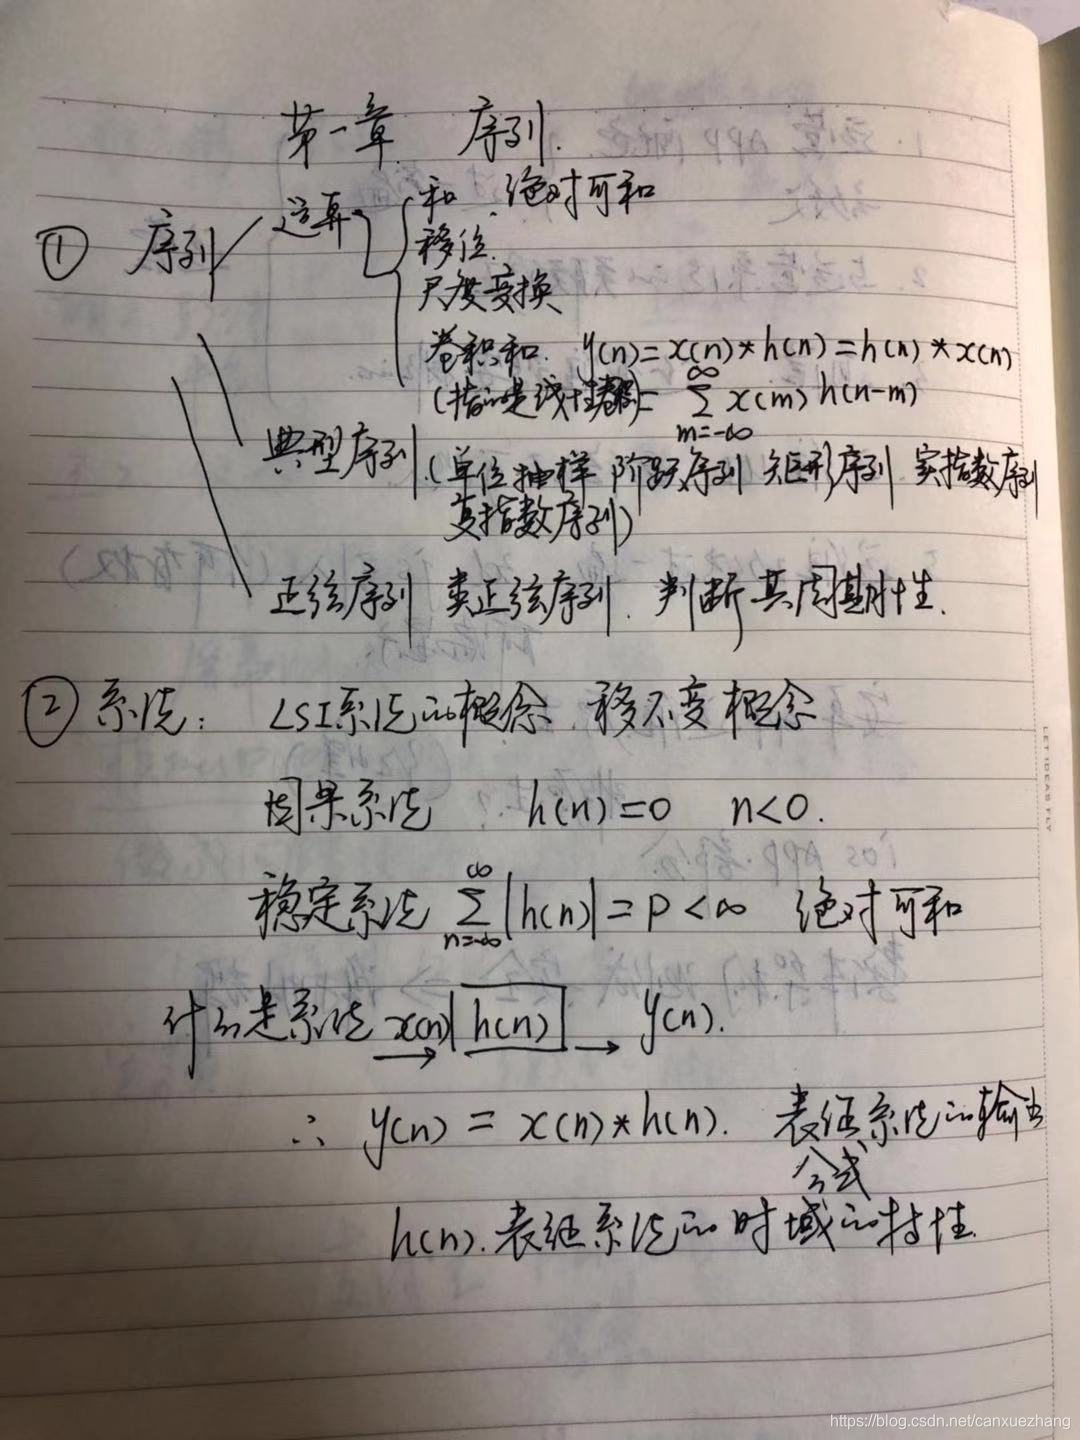 第一章 序列.
① 序列 运算 和 . 绝对可和
移位.
尺度变换
卷积和. y(n)=x(n)*h(n)=h(n)*x(n)
(指的是线性卷积)= ∑ x(m) h(n-m)
∞
m=-∞
典型序列.(单位抽样 阶跃序列 矩形序列 实指数序列
复指数序列)
正弦序列 类正弦序列. 判断其周期性.
② 系统: LSI系统的概念 移不变概念
因果系统 h(n)=0 n<0.
稳定系统 ∑ |h(n)|=P<∞ 绝对可和
∞
n=-∞
什么是系统 x(n) h(n) → y(n).
→
∴ y(n)=x(n)*h(n). 表征系统的输出
公式
h(n).表征系统的时域的特性.
LET IDEAS FLY
https://blog.csdn.net/canxuezhang